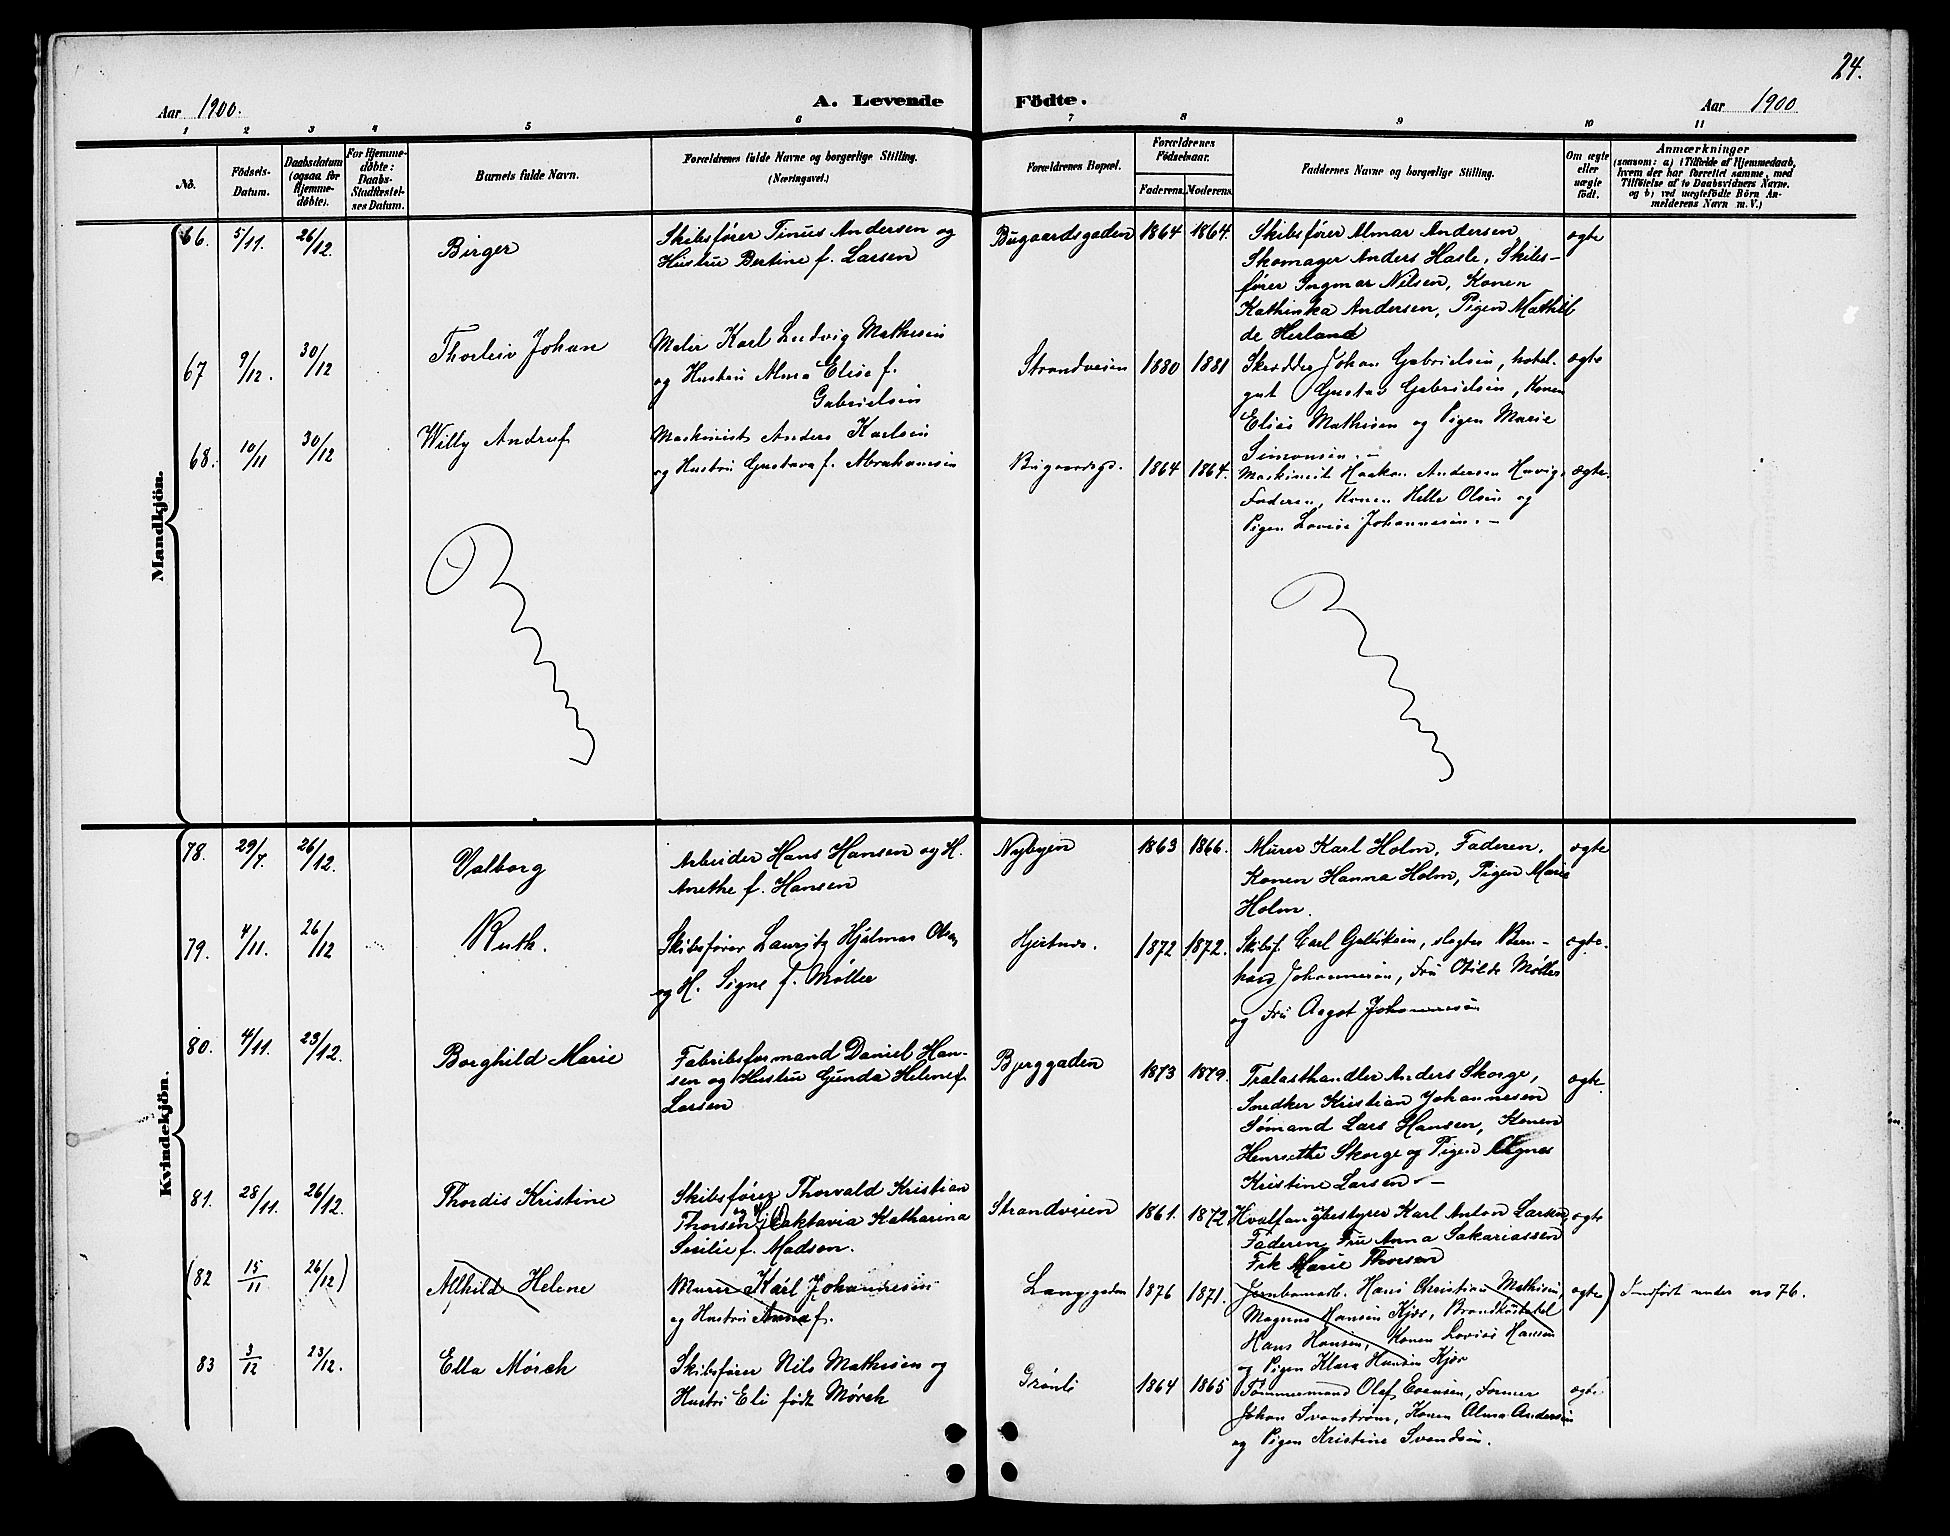 24.
Aar 1900.
A. Levende
Födte.
Aar 1900
1 2 3 4 5 6 7 8 9 10 11
No.
Födsels-
Datum.
Daabsdatum
(ogsaa for
Hjemme-
døbte).
For Hjemme-
døbte:
Daabs-
Stadfæstel-
ses Datum.
Barnets fulde Navn.
Forældrenes fulde Navne og borgerlige Stilling.
(Næringsvei.)
Forældrenes Bopæl.
Forældrenes
Födselsaar.
Faderens.
Moderens.
Faddernes Navne og borgerlige Stilling.
Om ægte
eller
uægte
født.
Anmærkninger
(saasom: a) i Tilfælde af Hjemmedaab,
hvem der har forrettet samme, med
Tilföielse af to Daabsvidners Navne.
og b) ved uægtefödte Börn An-
melderens Navn m. V.)
Mandkjön.
66. 5/11. 26/12. Birger
Skibsfører Tinus Andersen og
Hustru Bertine f. Larsen
Bugaardsgaden 1864 1864.
Skibsfører Almar Andersen,
Skomager Anders Hasle, Skibs-
fører Ingmar Nilsen, Konen
Kathinka Andersen, Pigen Mathil
de Herland
ægte
67 9/12. 30/12 Thorleiv Johan
Maler Karl Ludvig Mathisen
og Hustru Alma Elise f.
Gabrielsen
Strandveien 1880 1881
Skrædder Johan Gabrielsen,
Gustav Gabrielsen, Konen
Mathisen og Pigen Marie
Simonsen.
ægte
68. 10/11 30/12 Willy Andruf
Maskinist Anders Karlsen
og Hustru Gustava f. Abrahamsen
Bugaardsgd. 1864 1864.
Maskinist Haakon Andersen
Faderen, Konen Helle Olsen og
Pigen Lovise Johannesen. -
ægte.
Kvindekjön.
78. 29/7. 26/12. Valborg
Arbeider Hans Hansen og H.
Anethe f. Hansen
Nybyen 1863 1866.
Murer Karl Holm, Faderen,
Konen Hanna Holm, Pigen Marie
Holm.
ægte
79. 4/11. 26/12 Ruth.
Skibsfører Lauritz Hjalmar Olsen
og H. Signe f. Møller
Hjertnes. 1872 1872.
Skibsf. Carl Gulliksen, slagter Bern-
hard Johannesen, Fru Otilde Møller
og Fru Aagot Johannesen
ægte.
80. 4/11. 23/12. Borghild Marie
Fabriksformand Daniel Han-
sen og Hustru Gunda Helene f.
Larsen
Bjerggaden 1873 1879.
Trælasthandler Anders Skorge,
Snedker Kristian Johannesen
Sømand Lars Hansen, Konen
Henriette Skorge og Pigen Agnes
Kristine Larsen -
ægte.
81. 28/11. 26/12. Thordis Kristine
Skibsfører Thorvald Kristian
Thorsen og H. Oktavia Katharina
Sesilie f. Madsen.
Strandveien 1861. 1872
Hvalfangbestyrer Karl Anton Larsen
Faderen, Fru Anna Sakariassen
Frk Marie Thorsen
ægte
(82 15/11 26/12) Alhild Helene
Murer Karl Johannesen
og Hustru Anna f.
Langgaden 1876 1871.
Jernbanearb. Hans Christian Mathisen,
Magnus Hansen Kjær,
Hans Hansen, Konen Lovise Hansen
og Pigen Klara Hansen Kjær
ægte) Indført under no 76.
83 3/12 23/12. Ella Mørch
Skibsfører Nils Mathisen og
Hustru Eli født Mørch
Grønli 1864 1865
Tømmermand Olaf Evensen, Former
Johan Svanstrøm, Konen Alma Andersen
og Pigen Kristine Svendsen.
ægte